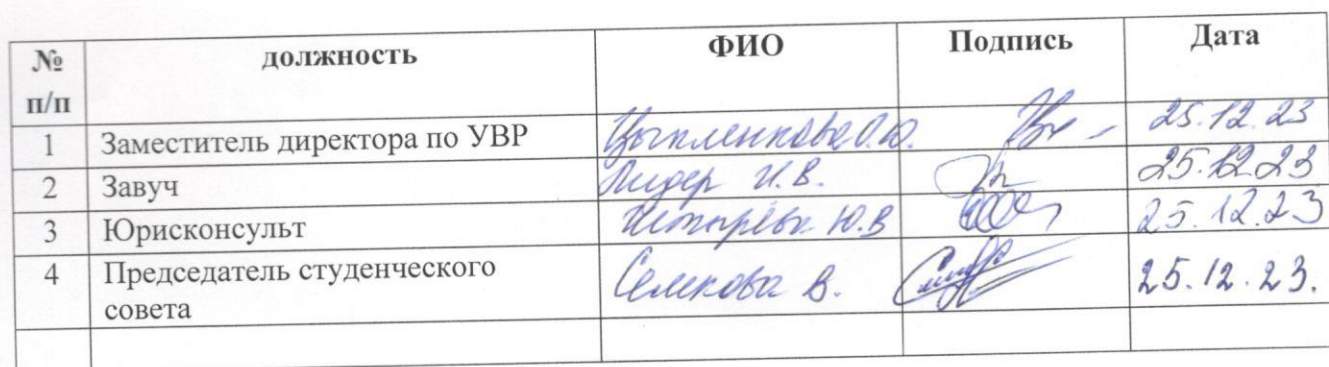 № п/п должность ФИО Подпись Дата
1 Заместитель директора по УВР Цыпленкова О.Ю. 25.12.23
2 Завуч Лидер И.В. 25.12.23
3 Юрисконсульт Ю.В 25.12.23
4 Председатель студенческого
совета Семенова В. 25.12.23.